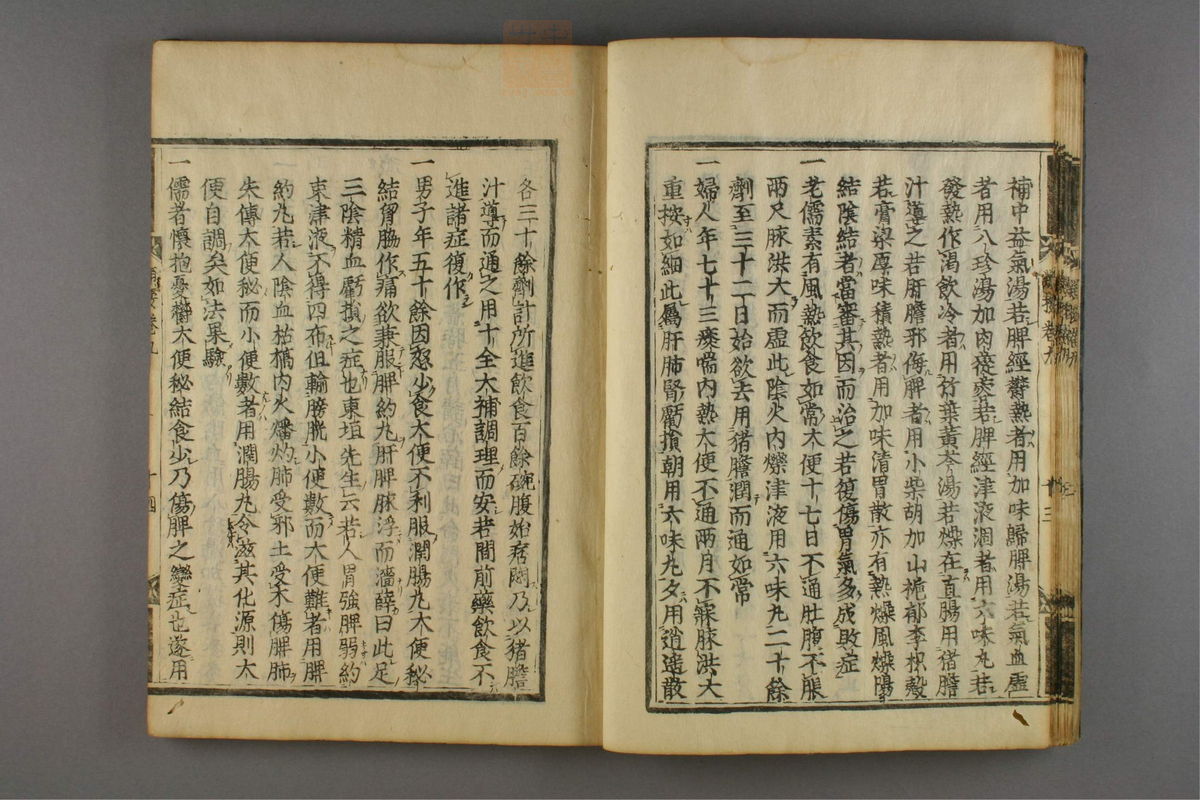 補中益氣湯若脾經鬱熱者用加味歸脾湯若氣血虛
者用八珍湯加肉蓯蓉若脾經津液涸者用六味丸若
發熱作渴飲冷者用竹葉黃芩湯若燥在直腸用猪膽
汁導之若肝膽邪侮脾者用小柴胡加山梔郁李枳殼
若膏粱厚味積熱者用加味清胃散亦有熱燥風燥陽
結陰結者當審其因而治之若復傷胃氣多成敗症
一老儒素有風熱飲食如常大便十七日不通肚腹不脹
兩尺脉洪大而虛此陰火內爍津液用六味丸二十餘
劑至三十二日始欲去用猪膽潤而通如常
一婦人年七十三痰喘內熱大便不通兩月不寐脉洪大
重按如細此屬肝肺腎虧損朝用六味丸夕用逍遙散
各三十餘劑計所進飲食百餘碗腹始痞悶乃以猪膽
汁導而通之用十全大補調理而安若間前藥飲食不
進諸症復作
一男子年五十餘因怒少食大便不利服潤腸丸大便秘
結胷脇作痛欲兼服脾約丸肝脾脉浮而濇薛曰此足
三陰精血虧損之症也東垣先生云若人胃強脾弱約
束津液不得四布但輸膀胱小便數而大便難者用脾
約丸若人陰血枯槁內火燔灼肺受邪土受木傷脾肺
失傳大便秘而小便數者用潤腸丸令滋其化源則大
便自調矣如法果驗
一儒者懷抱憂鬱大便秘結食少乃傷脾之變症也遂用
十三
十四